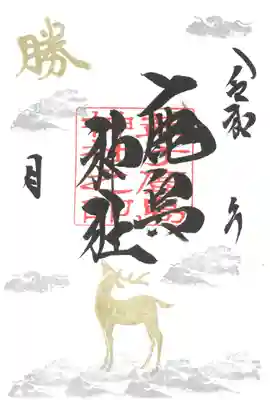 令和　年
鹿島
神社
勝
月